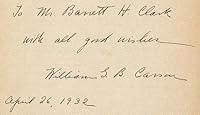 To Mr Barrett H Clark
with all good wishes
William G. B. Carson
April 26, 1932